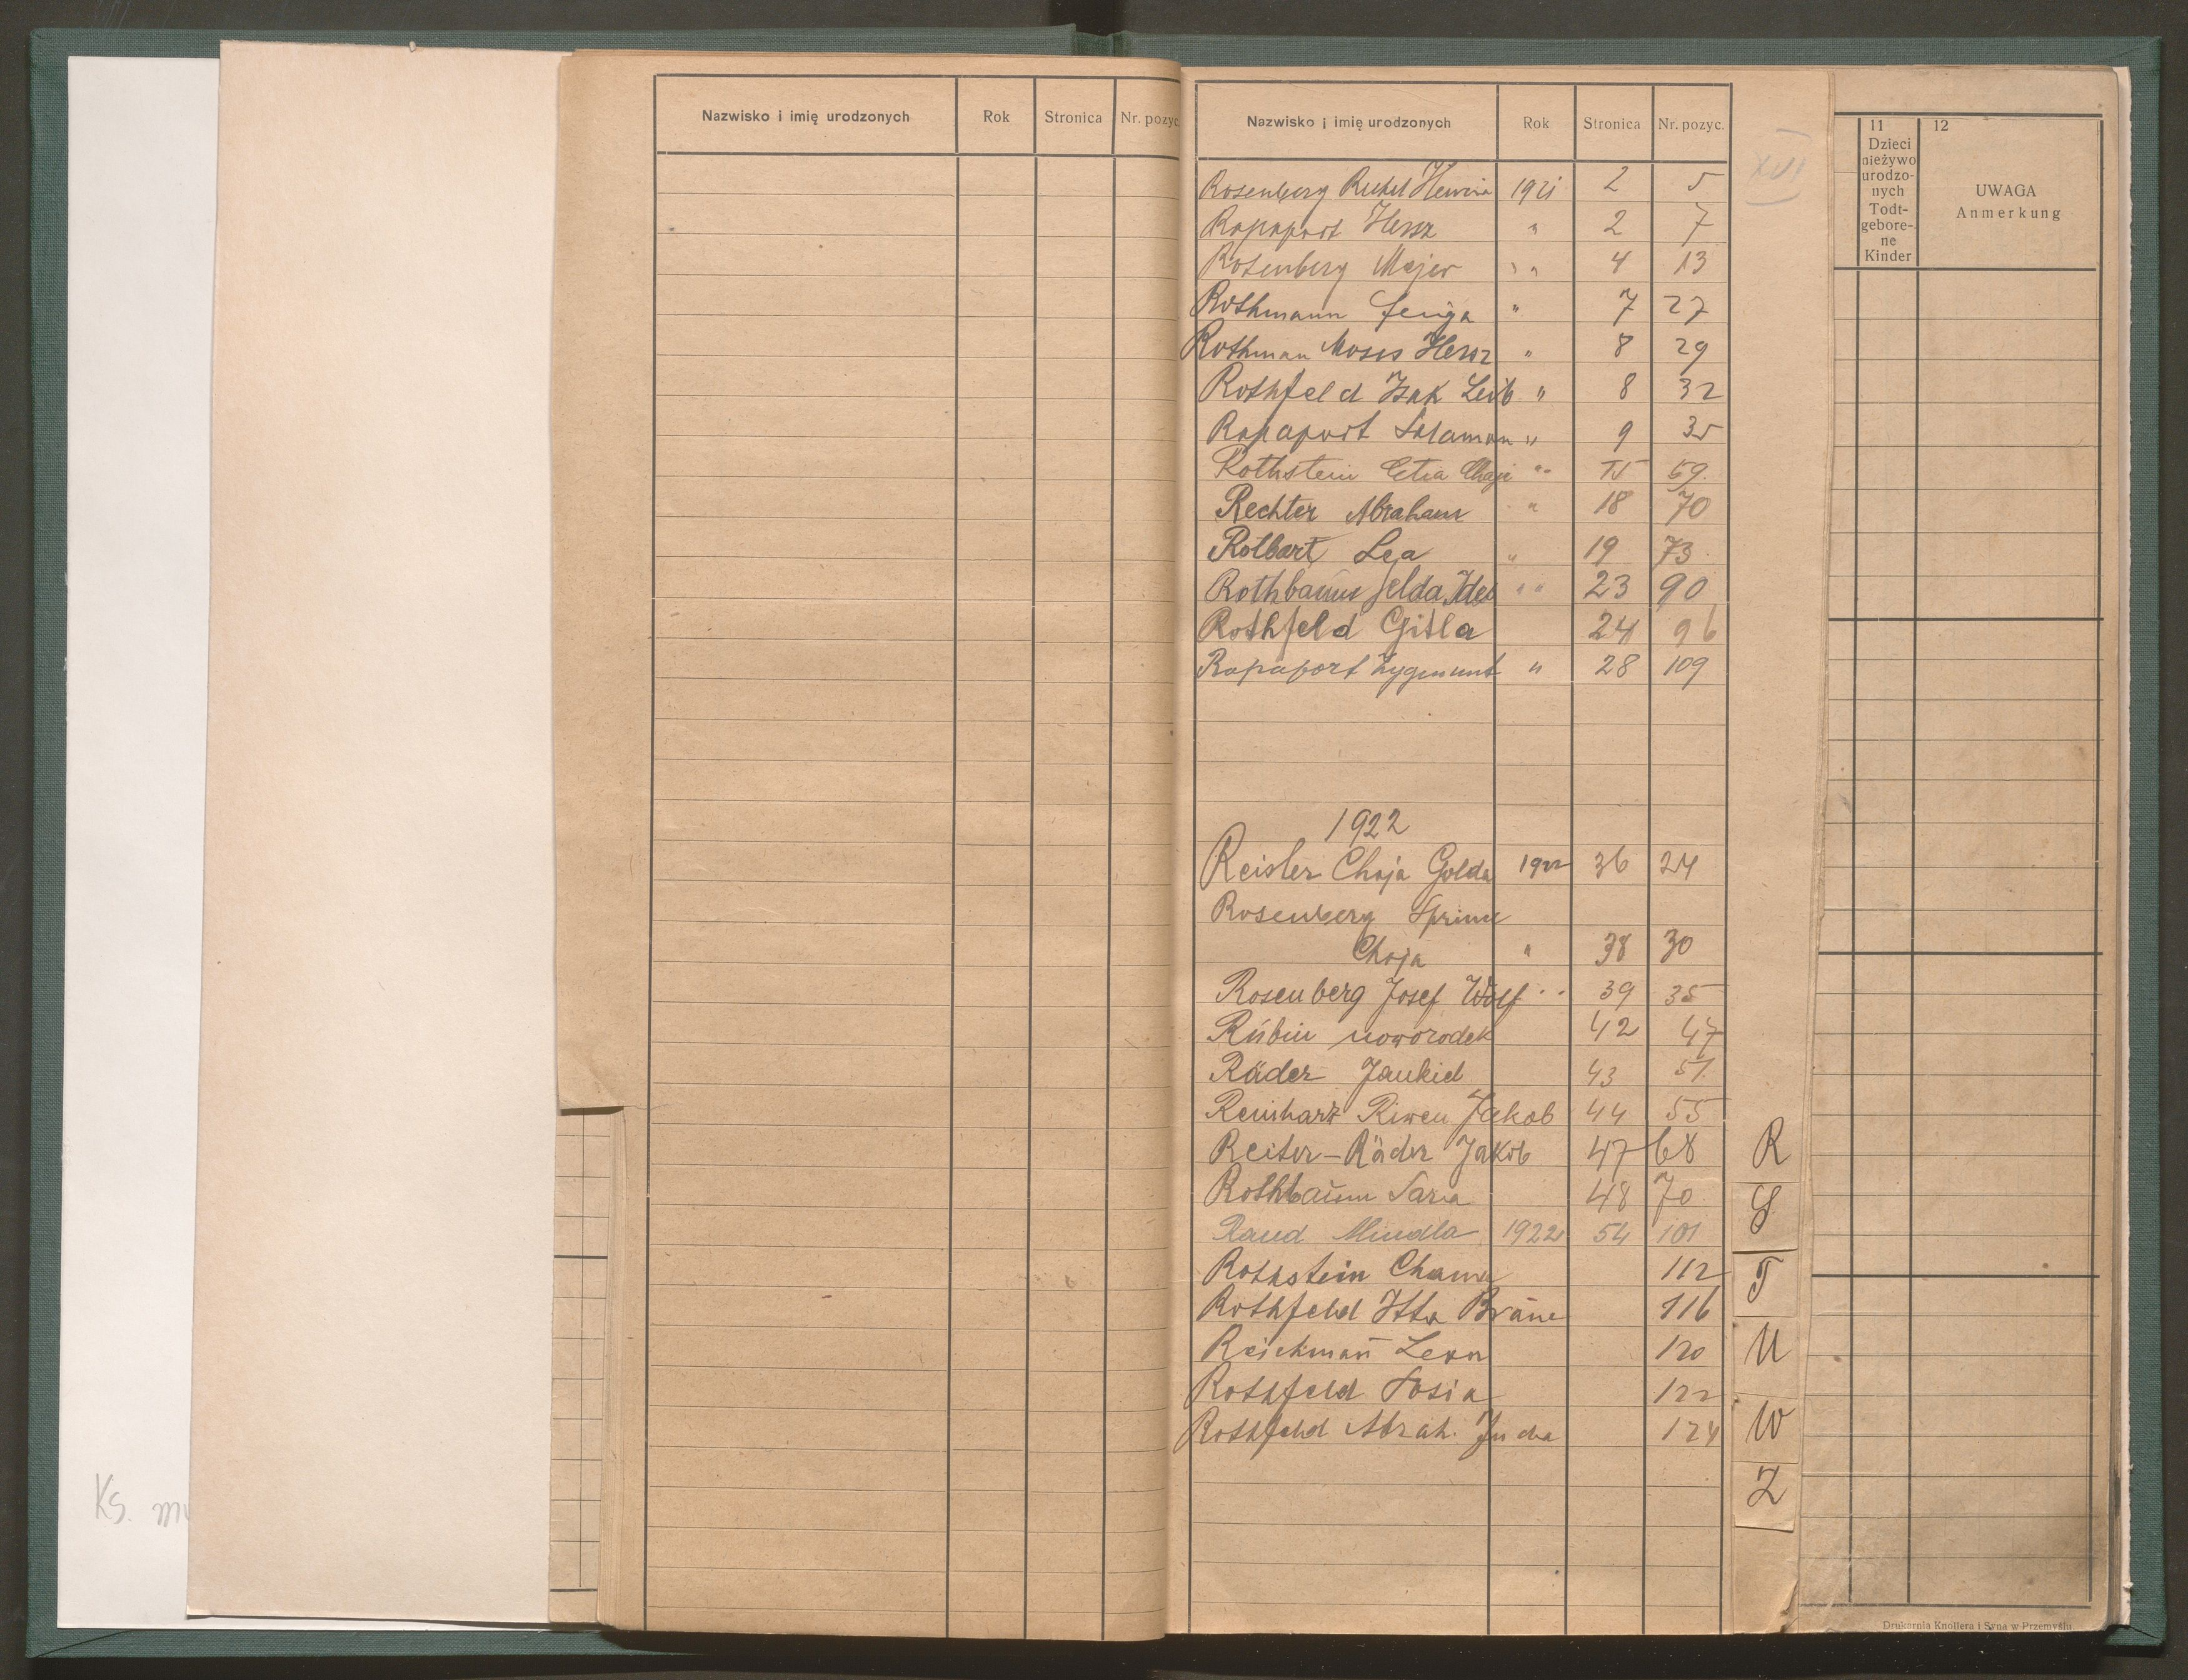 Nazwisko i imię urodzonych Rok Stronica Nr. pozyc
Nazwisko i imię urodzonych Rok Stronica Nr. pozyc.
XVI
Rosenberg 1921 2 5
Rapaport Hersz " 2 7
Rosenberg Majer " 4 13
Rothmann Feiga " 7 27
Rothman Moses Hersz " 8 29
Rothfeld Izak Leib " 8 32
Rapaport Salamon " 9 35
Rothstein Chaja " 15 59.
Rechter Abraham " 18 70
Rolbart Lea " 19 73
Rothbaum Jelda Ides " 23 90
Rothfeld Gitla 24 96
Rapaport Zygmunt " 28 109
1922
Reisler Chaja Golda 1922 36 24
Rosenberg Sprince
Chaja " 38 30
Rosenberg Josef Wolf " 39 35
Rubin noworodek 42 47
Räder Jankiel 43 51.
Reinharz Riwen Jakob 44 55
Reiter-Räder Jakob 47 68
Rothbaum Sara 48 70
Rand Mindla 1922 54 101
Rothstein Chama 112
Rothfeld Itta Brane 116
Reichman̄ Leon 120
Rothfeld Sosia 122
Rothfeld Abrah. Juda 124
R
S
T
U
W
Z
11
Dzieci
nieżywo
urodzo-
nych
Todt-
gebore-
ne
Kinder
12
UWAGA
Anmerkung
Drukarnia Knollera i Syna w Przemyślu.
Ks.